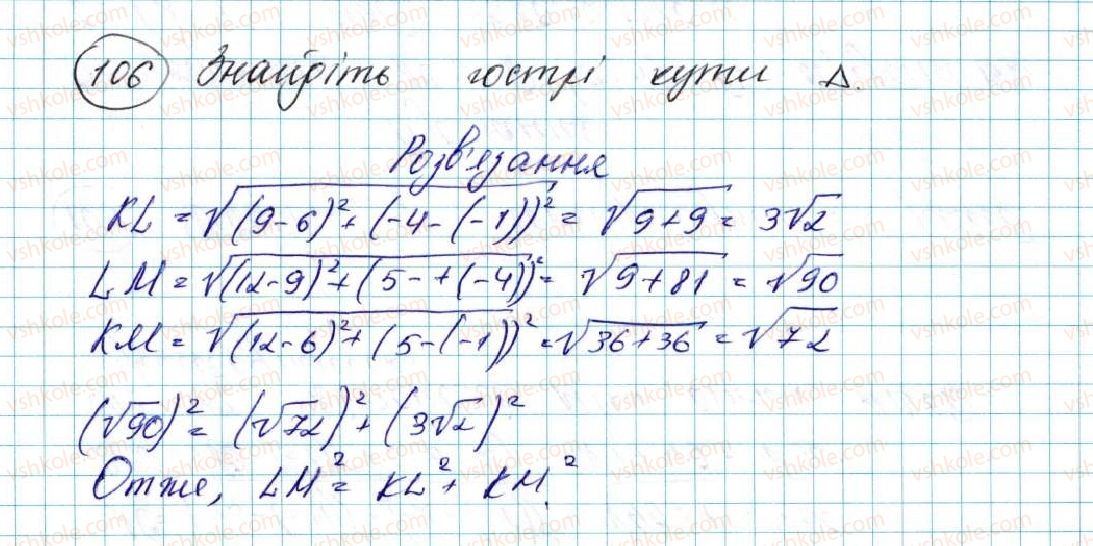 106 Знайдіть гострі кути Δ.
Розв'язання
KL = √(9-6)² + (-4-(-1))² = √9+9 = 3√2
LM = √(12-9)² + (5-+(-4))² = √9+81 = √90
KM = √(12-6)² + (5-(-1))² = √36+36 = √72
(√90)² = (√72)² + (3√2)²
Отже, LM² = KL² + KM².